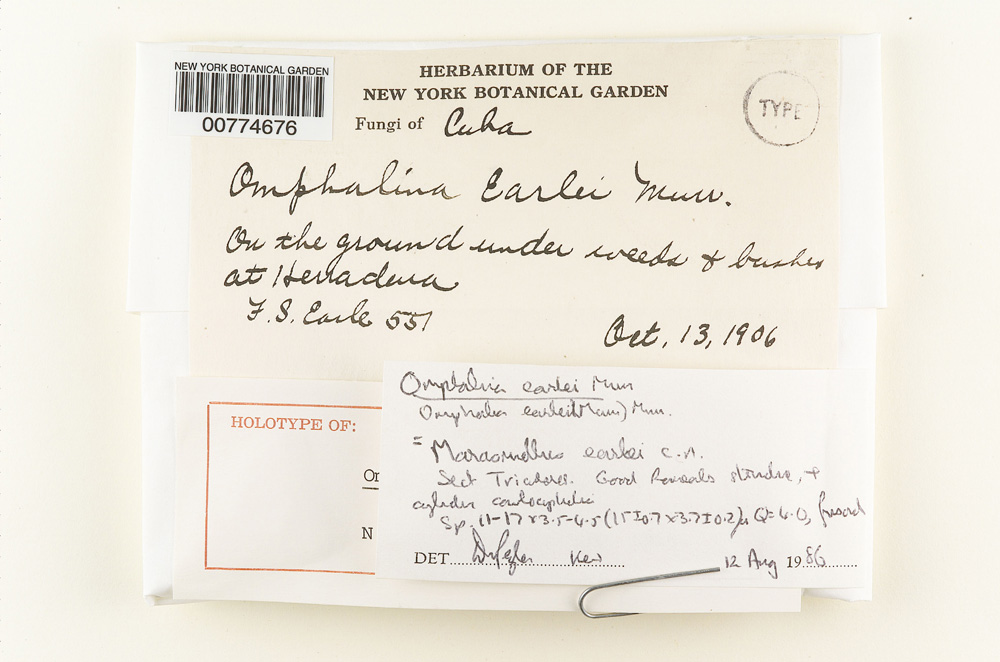 NEW YORK BOTANICAL GARDEN
00774676
HERBARIUM OF THE
NEW YORK BOTANICAL GARDEN
Fungi of Cuba
TYPE
Omphalina Earlei Murr.
On the ground under weeds & bushes
at Herradura
F. S. Earle 551
Oct. 13, 1906
HOLOTYPE OF:
Om
N
Omphalina earlei Murr
Omphalia earlei (Murr) Murr.
= Marasmiellus earlei c.n.
Sect Tricolores. Good Rameales structure, &
cylindric caulocystidia
Sp. 11-17 x 3.5-4.5 (15±0.7 x 3.7±0.2)µ Q=4.0, fusoid
DET. D Pegler Kew 12 Aug 1986